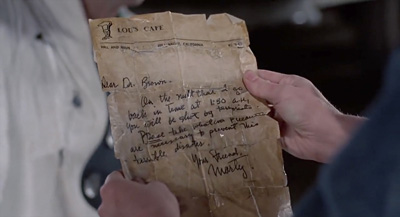 LOU'S CAFE
HILL VALLEY, CALIFORNIA
Dear Dr. Brown,
On the night that I go
back in time at 1:30 a.m.
you will be shot by
Please take whatever
are necessary to prevent this
terrible disaster.
Your Friend,
Marty